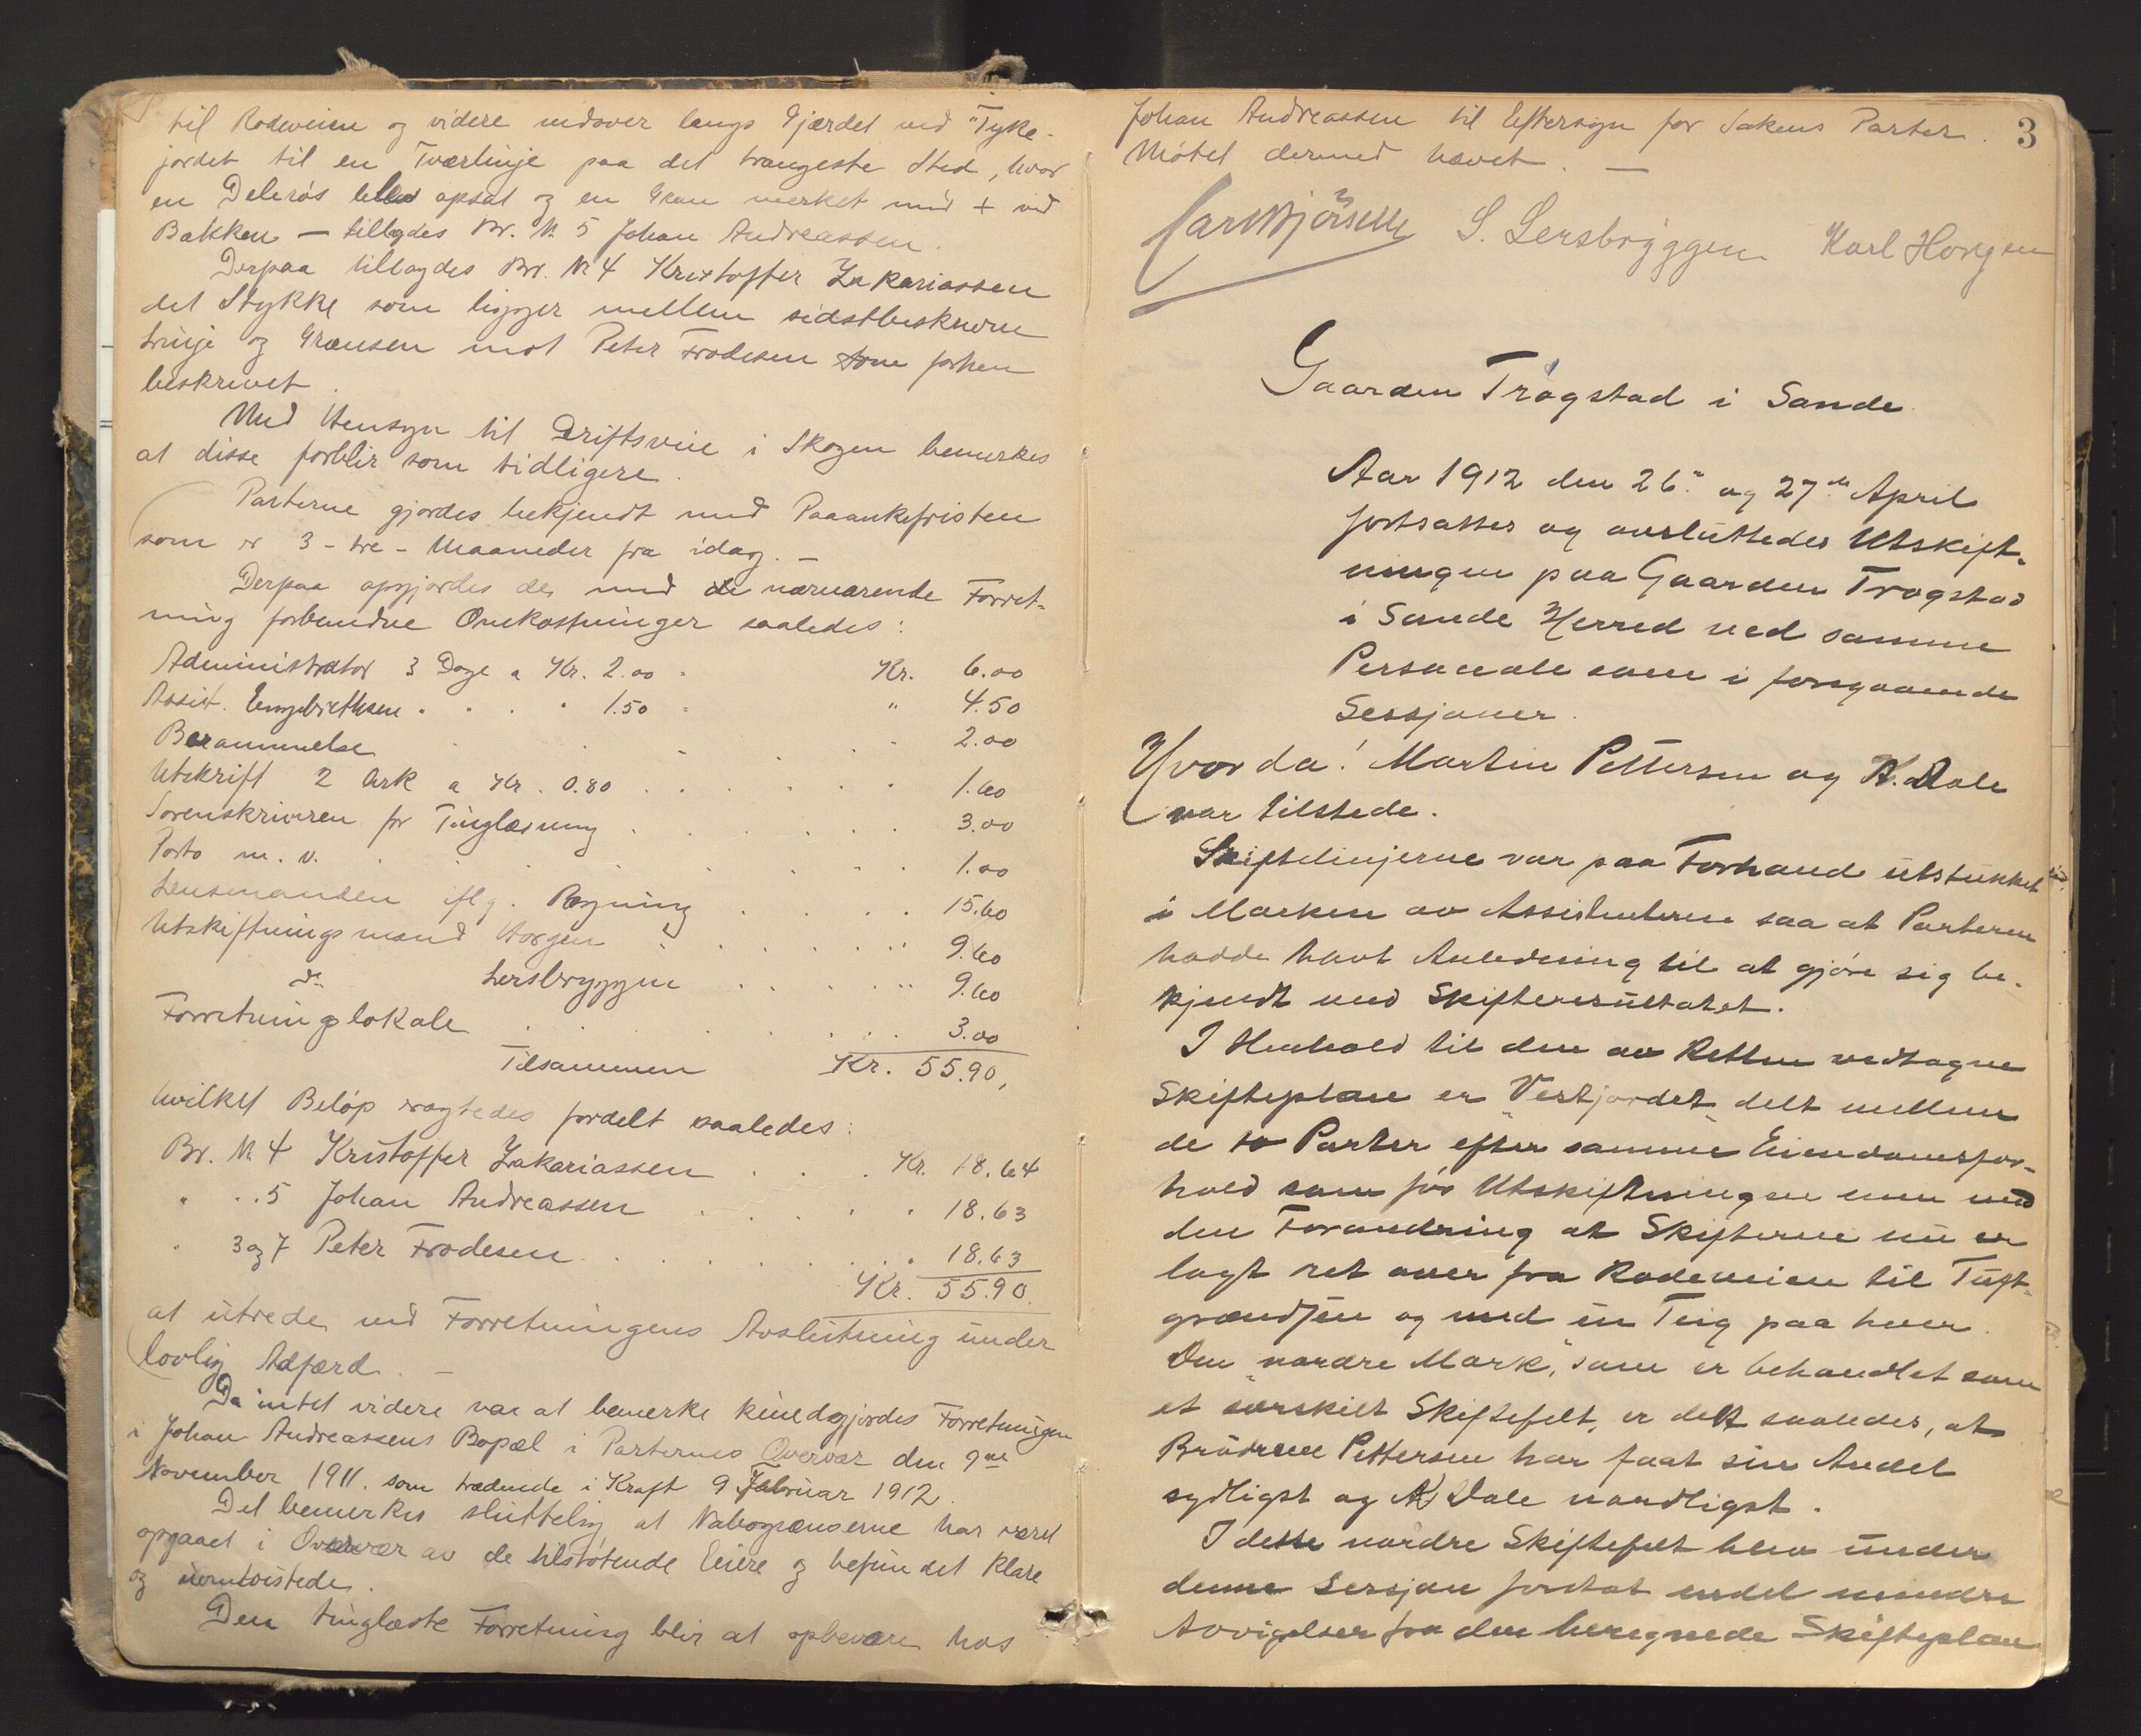 til Rodeveien og videre nedover langs Gjærdet ved "Tyke-
jordet til en Tværlinje paa det trangeste Sted, hvor
en Delerös blev opsat og en Gran merket med + ved
Bakken — tillagdes Br. N. 5 Johan Andreassen.
Derpaa tillagdes Br. N. 4 Kristoffer Zakariassen
det Stykke som ligger mellem sidstbeskrevne
Linje og Grænsen mot Peter Frodesen som forhen
beskrevet.
Med Hensyn til Driftsveie i Skogen bemerkes
at disse forblir som tidligere.
Parterne gjordes bekjendt med Paaankefristen
som er 3 - tre - Maaneder fra idag. —
Derpaa opgjordes de med nærværende Forret-
ning forbundne Omkostninger saaledes:
Administrator 3 Dage a Kr. 2.00 Kr. 6.00
Assist. Engebrethsen " " 1.50 " 4.50
Berammelse 2.00
Utskrift 2 Ark a Kr. 0.80 1.60
Sorenskriveren for Tinglæsning 3.00
Porto m. v. 1.00
Lensmanden iflg. Regning 15.60
Utskiftningsmand Horgen 9.60
do Lersbryggen 9.60
Forretningslokale 3.00
Tilsammen Kr. 55.90,
hvilket Beløp vedtoges fordelt saaledes:
Br. N. 4 Kristoffer Zakariassen Kr. 18.64
" " 5 Johan Andreassen 18.63
" 3 og 7 Peter Frodesen 18.63
Kr. 55.90.
at utrede ved Forretningens Avslutning under
lovlig Adfærd. —
Da intet videre var at bemerke kundgjordes Forretningen
i Johan Andreassens Bopæl i Parternes Overvær den 9de
November 1911. som trædende i Kraft 9 Februar 1912.
Det bemerkes sluttelig at Nabogrænserne har været
opgaaet i Overvær av de tilstötende Eiere og befundet klare
og uomtvistede.
Den tinglæste Forretning blir at opbevare hos
3
Johan Andreassen til Eftersyn for Sakens Parter.
Mötet dermed hævet. —
S. Lersbryggen Karl Horgen
Gaarden Trögstad i Sande
Aar 1912 den 26. og 27de April
fortsattes og avsluttedes Utskift-
ningen paa Gaarden Trogstad
i Sande Herred ved samme
Personale som i foregaaende
Sessjoner.
Hvorda! Martin Pettersen og K. Dale
var tilstede.
Skiftelinjerne var paa Forhaand utstukket
i Marken av Assistenterne saa at Parterne
hadde havt Anledning til at gjöre sig be-
kjendt med Skifteresultatet.
I Henhold til den av Retten vedtagne
Skifteplan er "Vestjordet" delt mellem
de to Parter efter samme Eiendomsfor-
hold som för Utskiftningen men med
den Forandring at Skifterne nu er
lagt ret over fra Rodeveien til Tuft-
grændsen og med en Teig paa hver.
Den "nordre Mark," som er behandlet som
et særskilt Skiftefelt, er delt saaledes, at
Brödrene Pettersen har faat sin Andel
sydligst og K. Dale nordligst.
I dette nordre Skiftefelt blev under
denne Sessjon foretat endel mindre
Avvigelser fra den beregnede Skifteplan